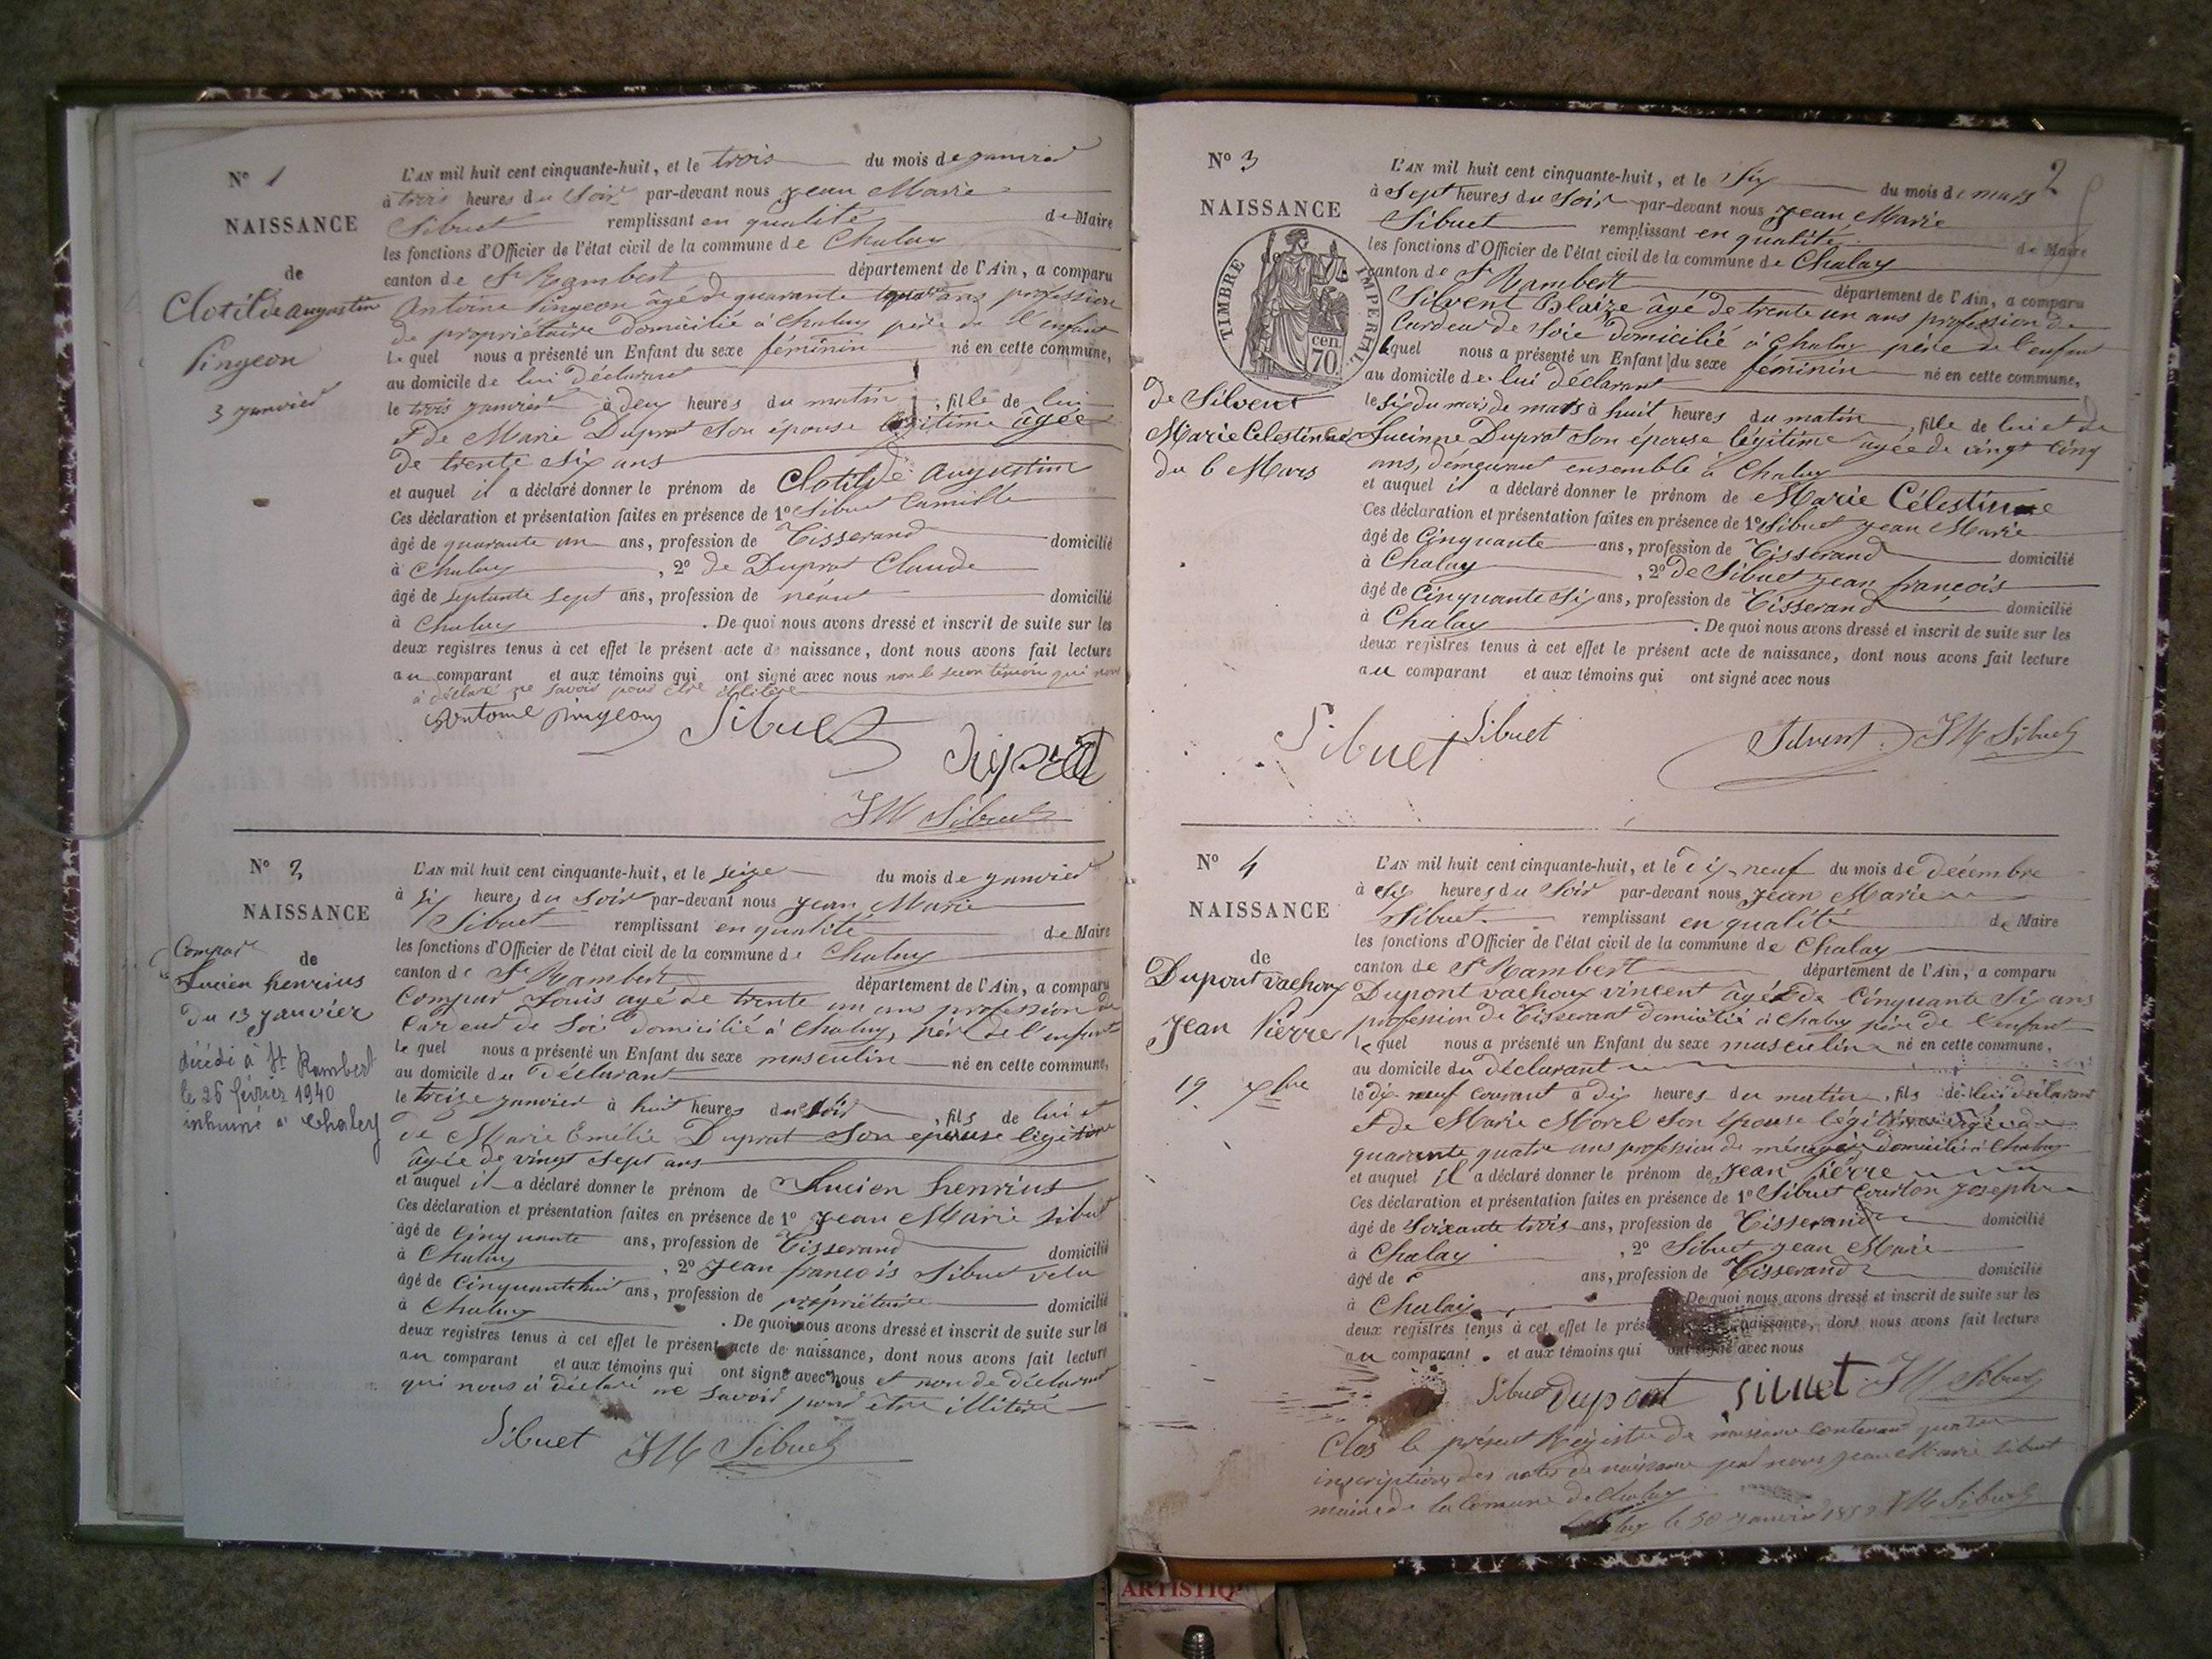 N° 1
NAISSANCE
de
Clotilde augustin
Pingeon
3 janvier
L'AN mil huit cent cinquante-huit, et le trois du mois de janvier
à trois heures du Soir par-devant nous jean Marie
Sibuet remplissant en qualité de Maire
les fonctions d'Officier de l'état civil de la commune de Chaley
canton de St Rambert département de l'Ain, a comparu
Antoine Pingeon âgé de quarante ans profession
de propriétaire domicilié à Chaley père de l'enfant
lequel nous a présenté un Enfant du sexe féminin né en cette commune,
au domicile de lui déclarant
le trois janvier à deux heures du matin, fille de lui
et de Marie Duprat Son épouse légitime âgée
de trente six ans
et auquel il a déclaré donner le prénom de Clotilde augustin
Ces déclaration et présentation faites en présence de 1° Sibuet Camille
âgé de quarante un ans, profession de Tisserand domicilié
à Chaley, 2° de Duprat Claude
âgé de septante sept ans, profession de néant domicilié
à Chaley. De quoi nous avons dressé et inscrit de suite sur les
deux registres tenus à cet effet le présent acte de naissance, dont nous avons fait lecture
au comparant et aux témoins qui ont signé avec nous non le témoin qui nous
à déclaré ne savoir pour être illitéré
Antoine pingeon Sibuet
duprat
JM Sibuet
N° 2
NAISSANCE
de
Compar
Lucien henrius
du 13 janvier
décédé à St Rambert
le 26 février 1940
inhumé à Chaley
L'AN mil huit cent cinquante-huit, et le seize du mois de janvier
à six heures du Soir par-devant nous jean Marie
Sibuet remplissant en qualité de Maire
les fonctions d'Officier de l'état civil de la commune de Chaley
canton de St Rambert département de l'Ain, a comparu
Compar Louis agé de trente un ans profession de
Cardeur de Soie domicilié à Chaley, père de l'enfant
lequel nous a présenté un Enfant du sexe masculin né en cette commune,
au domicile du Déclarant
le treize janvier à huit heures du soir, fils de lui et
de Marie Émélie Duprat Son épouse légitime
âgée de vingt sept ans
et auquel il a déclaré donner le prénom de Lucien henrius
Ces déclaration et présentation faites en présence de 1° jean Marie Sibuet
âgé de Cinquante ans, profession de Tisserand domicilié
à Chaley, 2° jean françois Sibuet
âgé de Cinquante huit ans, profession de propriétaire domicilié
à Chaley. De quoi nous avons dressé et inscrit de suite sur les
deux registres tenus à cet effet le présent acte de naissance, dont nous avons fait lecture
au comparant et aux témoins qui ont signé avec nous et non de déclarant
qui nous à déclaré ne savoir pour être illitéré
Sibuet JM Sibuet
2
N° 3
NAISSANCE
TIMBRE IMPERIAL
cen.
70
de Silvent
Marie Celestinne
du 6 Mars
L'AN mil huit cent cinquante-huit, et le Six du mois de mars
à Sept heures du Soir par-devant nous Jean Marie
Sibuet remplissant en qualité de Maire
les fonctions d'Officier de l'état civil de la commune de Chaley
canton de St Rambert département de l'Ain, a comparu
Silvent Blaize âgé de trente un ans profession de
Cardeur de Soie domicilié à Chaley père de l'enfant
lequel nous a présenté un Enfant du sexe féminin né en cette commune,
au domicile de lui déclarant
le Six du mois de mars à huit heures du matin, fille de lui et de
Lucinne Duprat Son épouse légitime âgée de vingt Cinq
ans, demeurant ensemble à Chaley
et auquel il a déclaré donner le prénom de Marie Célestinne
Ces déclaration et présentation faites en présence de 1° Sibuet jean Marie
âgé de Cinquante ans, profession de Tisserand domicilié
à Chaley, 2° de Sibuet jean françois
âgé de Cinquante Six ans, profession de Tisserand domicilié
à Chaley. De quoi nous avons dressé et inscrit de suite sur les
deux registres tenus à cet effet le présent acte de naissance, dont nous avons fait lecture
au comparant et aux témoins qui ont signé avec nous
Sibuet Sibuet Silvent JM Sibuet
N° 4
NAISSANCE
de
Dupont vachoux
Jean Pierre
19 xbre
L'AN mil huit cent cinquante-huit, et le dix-neuf du mois de Décembre
à Six heures du Soir par-devant nous Jean Marie
Sibuet remplissant en qualité de Maire
les fonctions d'Officier de l'état civil de la commune de Chaley
canton de St Rambert département de l'Ain, a comparu
Dupont vachoux vincent âgé de Cinquante Six ans
profession de Tisserant domicilié à Chaley père de l'enfant
lequel nous a présenté un Enfant du sexe masculin né en cette commune,
au domicile du déclarant
le dix neuf courant à dix heures du matin, fils de lui déclarant
et de Marie Morel Son épouse légitime âgée de
quarante quatre ans profession de ménagère domicilié à Chaley
et auquel il a déclaré donner le prénom de Jean Piérre
Ces déclaration et présentation faites en présence de 1° Sibuet Joseph
âgé de Soixante trois ans, profession de Tisserand domicilié
à Chaley, 2° Sibuet jean Marie
âgé de ans, profession de Tisserand domicilié
à Chaley. De quoi nous avons dressé et inscrit de suite sur les
deux registres tenus à cet effet le présent acte de naissance, dont nous avons fait lecture
au comparant et aux témoins qui ont signé avec nous
Sibuet Dupont Sibuet JM Sibuet
Clos le présent Régistre de naissance contenant quatre
inscriptions des actes de naissance par nous jean Marie Sibuet
maire de la Comune de Chaley
le 30 janvier JM Sibuet
ARTISTIQ